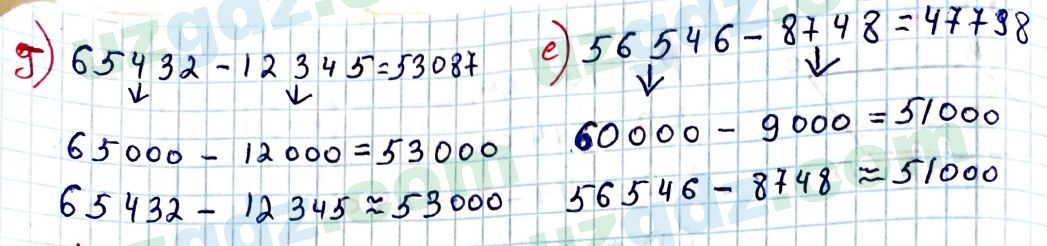 д) 65432 - 12345 = 53087
65000 - 12000 = 53000
65432 - 12345 ≈ 53000
е) 56546 - 8748 = 47798
60000 - 9000 = 51000
56546 - 8748 ≈ 51000